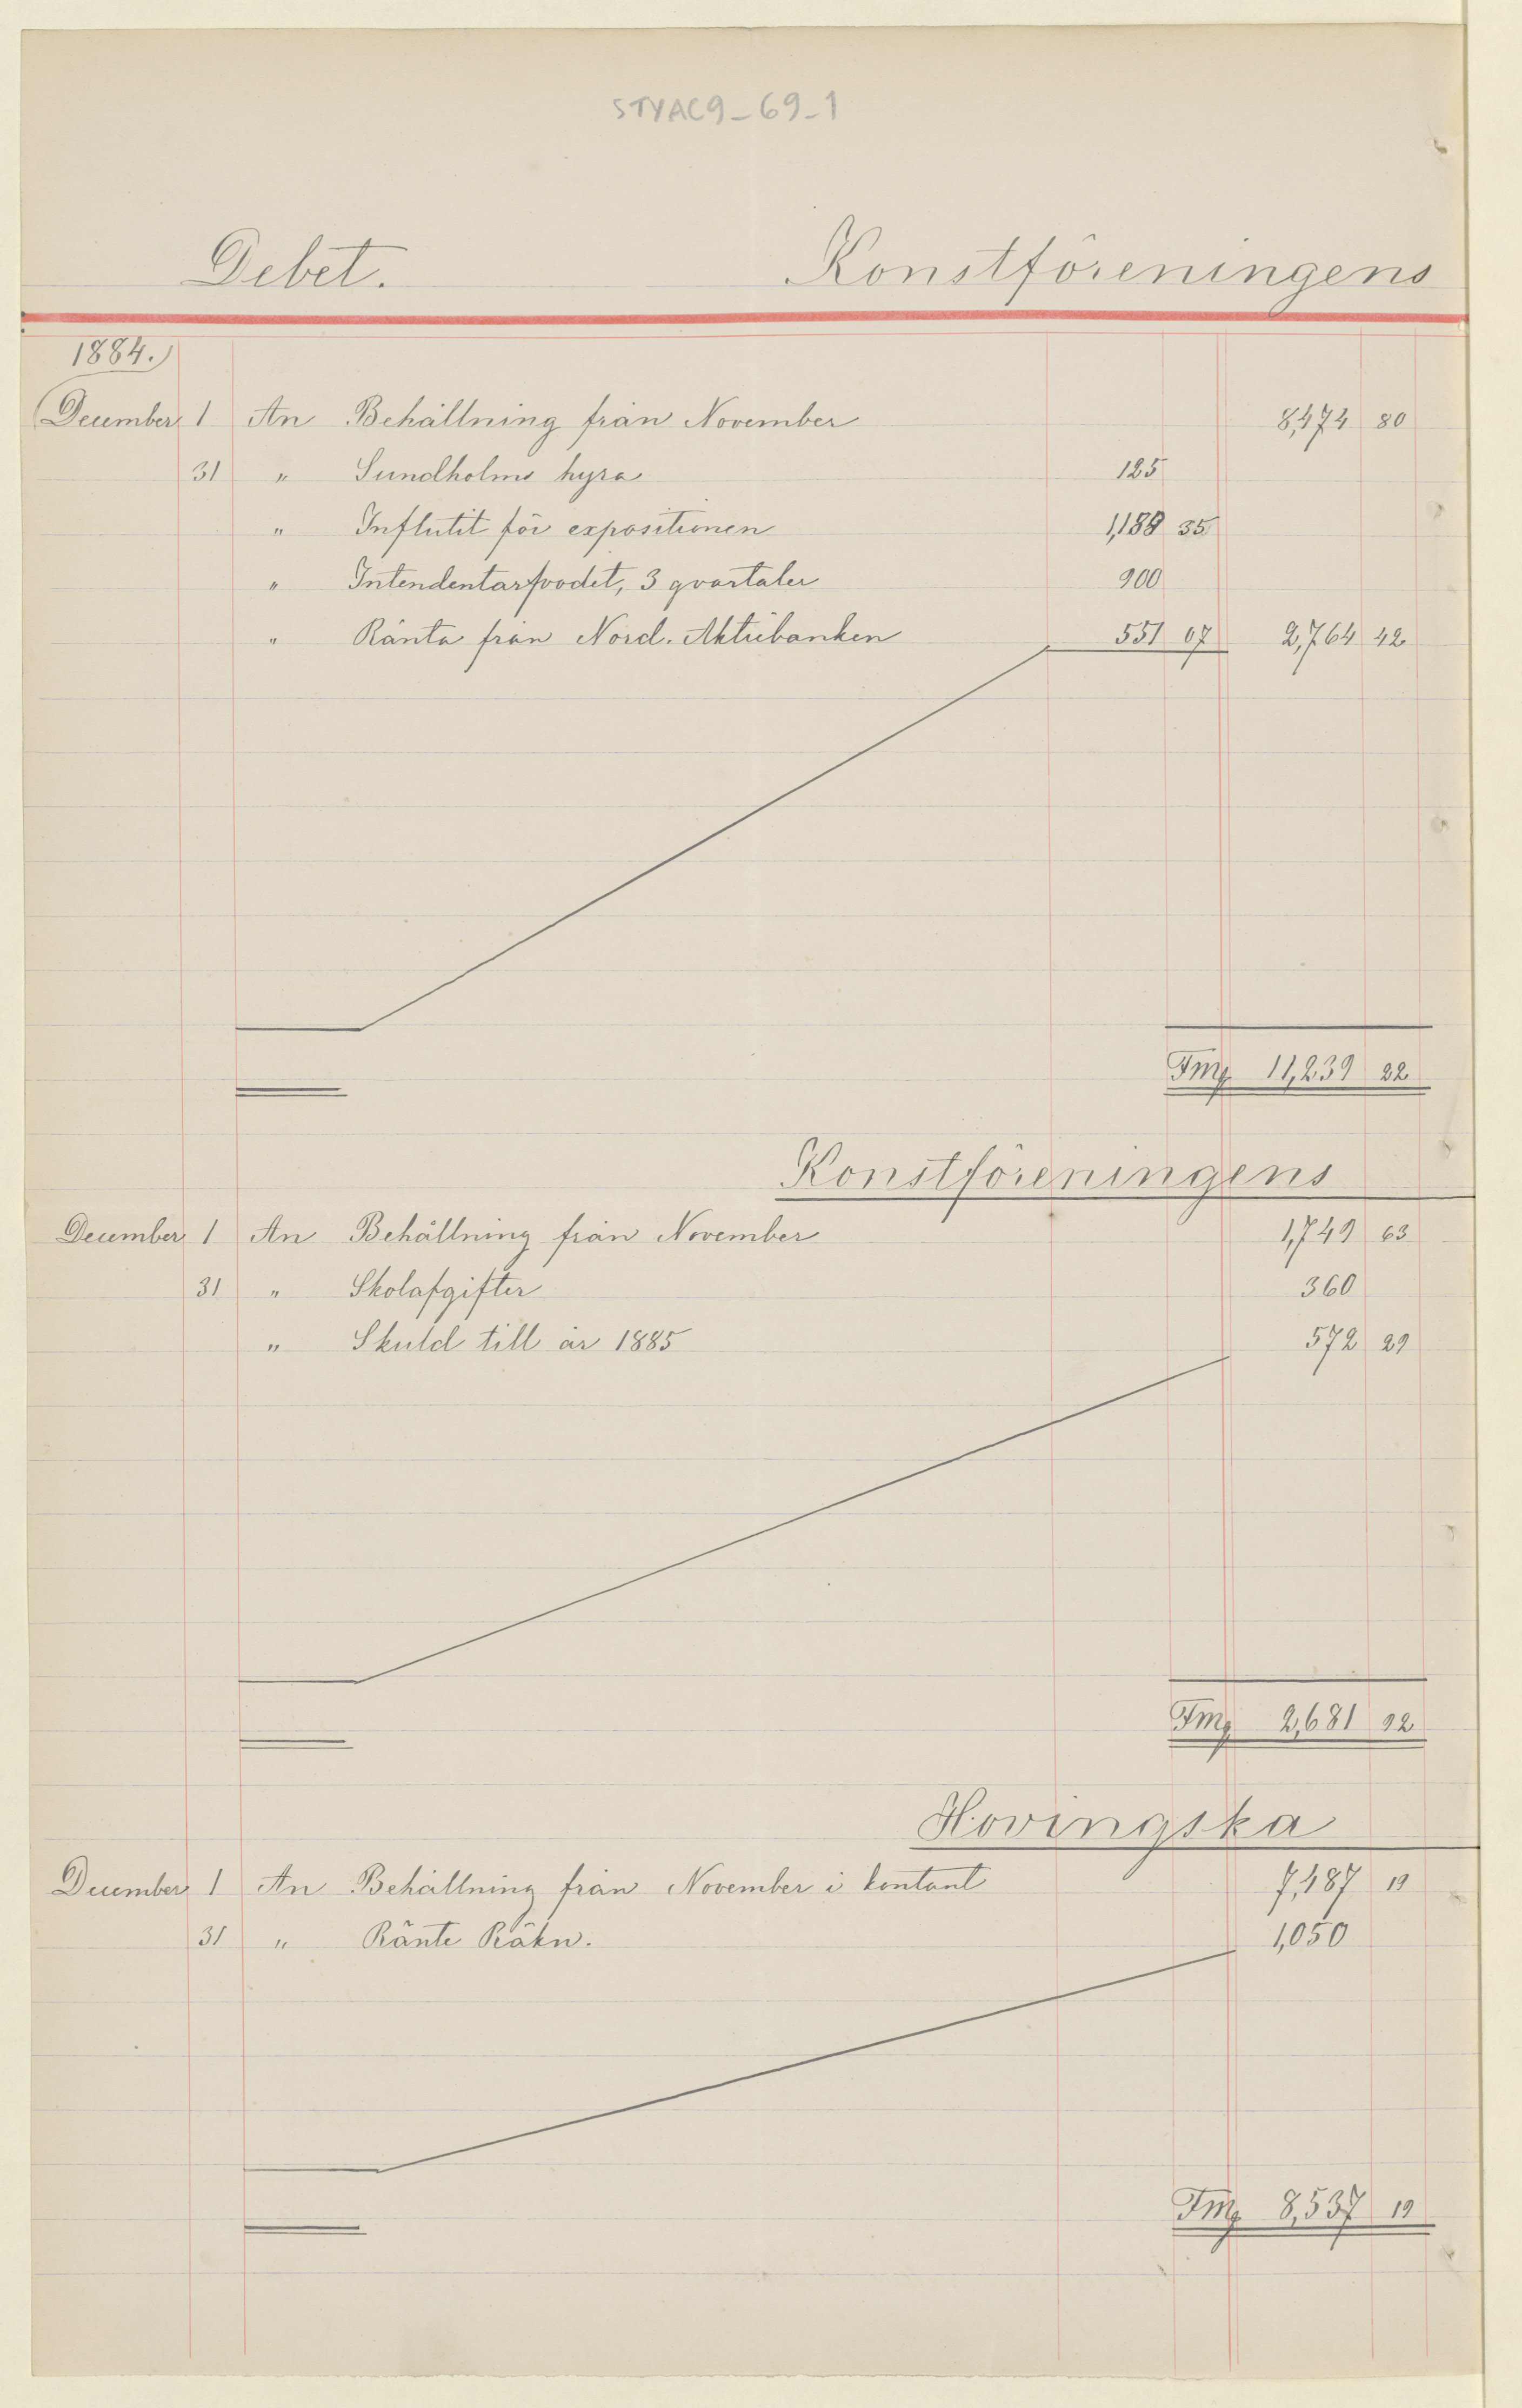 STYAC9_69_1
Debet. Konstföreningens
1884.
December 1 An Behållning från November 8,474 80
31 " Sundholms hyra 125
" Influtit för expositionen 1,188 35
" Intendentarfvodet, 3 qvartaler 900
" Ränta från Nord. Aktiebanken 551 07 2,764 42
Fmg 11,239 22
Konstföreningens
December 1 An Behållning från November 1,749 63
31 " Skolafgifter 360
" Skuld till år 1885 572 29
Fmg 2,681 92
Hovingska
December 1 An Behållning från November i kontant 7,487 19
31 " Ränte Räkn. 1,050
Fmg 8,537 19